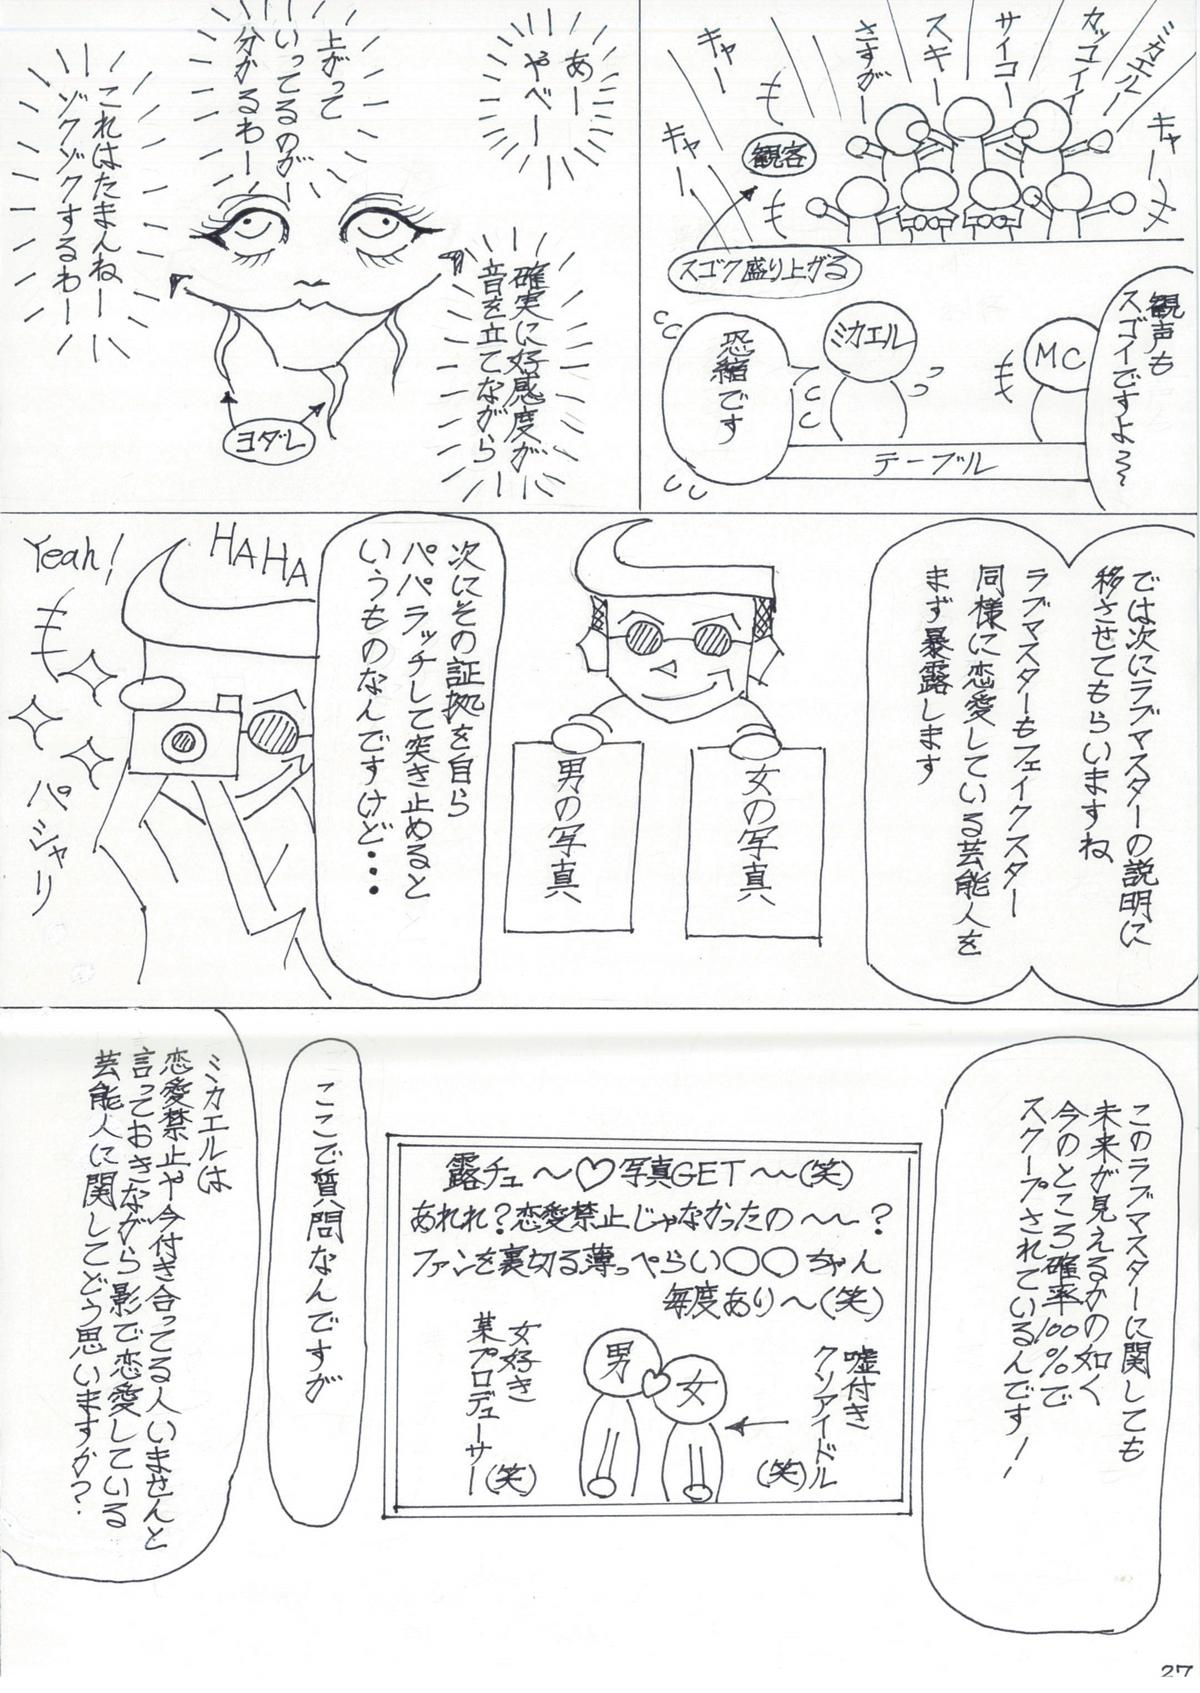 ミカエルー
カッコイイ
サイコー
スキー
さすがー
キャー
キャー
キャー
観客
スゴク盛り上がる
観声も
スゴイですよ〜
MC
ミカエル
恐縮です
テーブル
あー
やべー
確実に好感度が
音を立てながら
上がって
いってるのが
分かるわー
これはたまんねー
ゾクゾクするわー
ヨダレ
では次にラブマスターの説明に
移させてもらいますね
ラブマスターもフェイクスター
同様に恋愛している芸能人を
まず暴露します
女の写真
男の写真
次にその証拠を自ら
パパラッチして突き止めると
いうものなんですけど・・・
HAHA
Yeah!
パシャリ
このラブマスターに関しても
未来が見えるかの如く
今のところ確率100%で
スクープされているんです!
露チュ〜♡写真GET〜(笑)
あれれ?恋愛禁止じゃなかったの〜?
ファンを裏切る薄っぺらい○○ちゃん
毎度あり〜(笑)
嘘付き
クソアイドル
(笑)
男
女
女好き
某プロデューサー
(笑)
ここで質問なんですが
ミカエルは
恋愛禁止や今付き合ってる人いませんと
言っておきながら影で恋愛している
芸能人に関してどう思いますか?
27